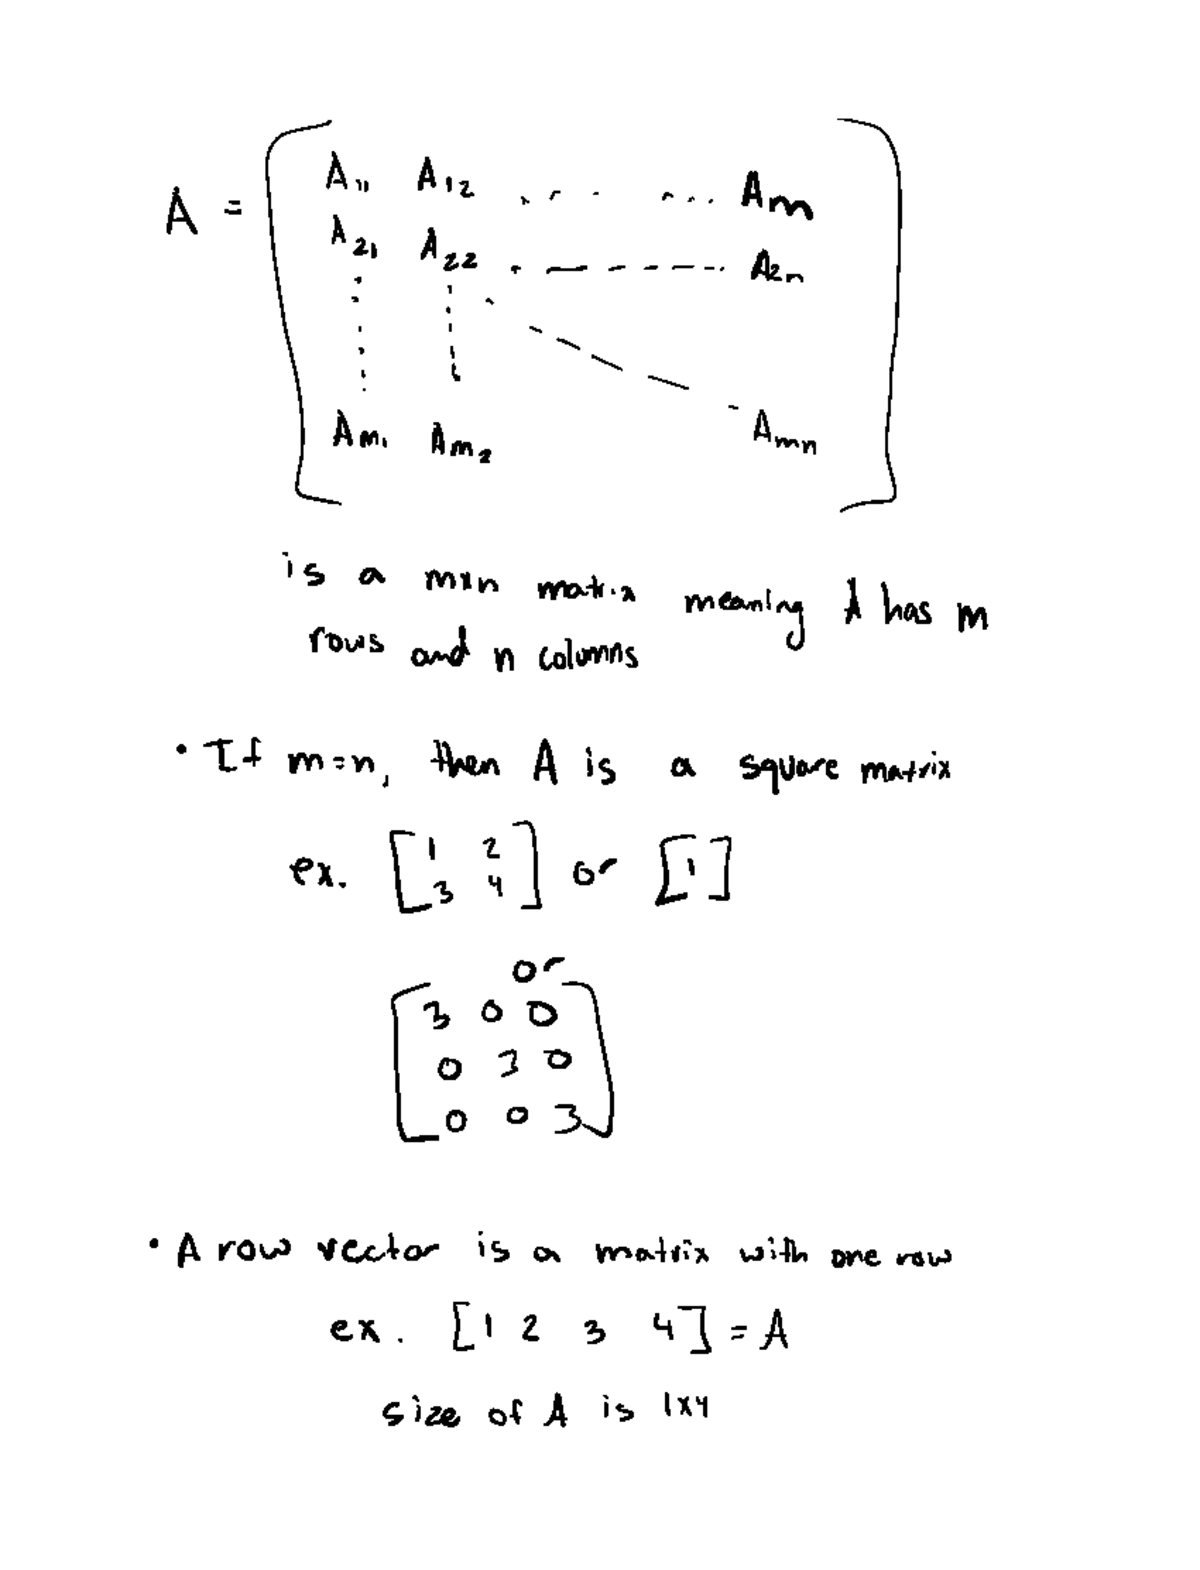 A = [ A11 A12 ..... Am
A21 A22 ------ A2n
Am1 Am2 Amn ]
is a mxn matrix meaning A has m
rows and n columns
• If m=n, then A is a square matrix
ex. [ 1 2 ] or [1]
[ 3 4 ]
or
[ 3 0 0
0 3 0
0 0 3 ]
• A row vector is a matrix with one row
ex. [1 2 3 4] = A
size of A is 1x4